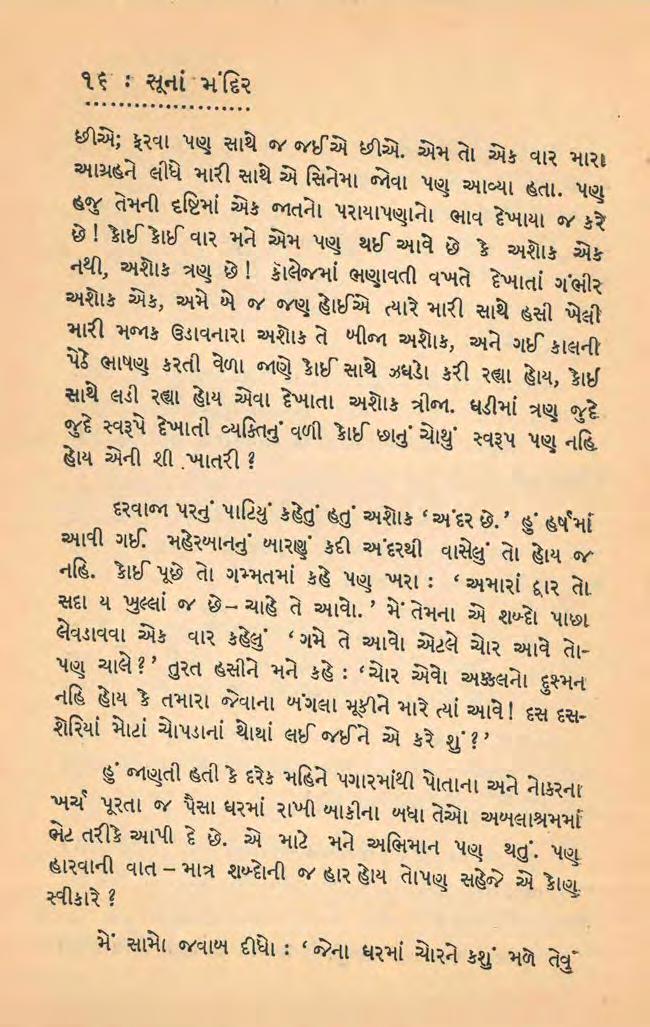 ૧૬ : સૂનાં મંદિર
છીએ; ફરવા પણ સાથે જ જઈએ છીએ. એમ તો એક વાર મારા
આગ્રહને લીધે મારી સાથે એ સિનેમા જોવા પણ આવ્યા હતા. પણ
હજુ તેમની દૃષ્ટિમાં એક જાતનો પરાયાપણાનો ભાવ દેખાયા જ કરે
છે! કોઈ કોઈ વાર મને એમ પણ થઈ આવે છે કે અશોક એક
નથી, અશોક ત્રણ છે! કૉલેજમાં ભણાવતી વખતે દેખાતાં ગંભીર
અશોક એક, અમે બે જ જણ હોઈએ ત્યારે મારી સાથે હસી ખેલી
મારી મજાક ઉડાવનારા અશોક તે બીજા અશોક, અને ગઈ કાલની
પેઠે ભાષણ કરતી વેળા જાણે કોઈ સાથે ઝઘડો કરી રહ્યા હોય, કોઈ
સાથે લડી રહ્યા હોય એવા દેખાતા અશોક ત્રીજા. ઘડીમાં ત્રણ જુદે
જુદે સ્વરૂપે દેખાતી વ્યક્તિનું વળી કોઈ છાનું ચોથું સ્વરૂપ પણ નહિ
હોય એની શી ખાતરી?
દરવાજા પરનું પાટિયું કહેતું હતું અશોક ‘અંદર છે.’ હું હર્ષમાં
આવી ગઈ. મહેરબાનનું બારણું કદી અંદરથી વાસેલું તો હોય જ
નહિ. કોઈ પૂછે તો ગમ્મતમાં કહે પણ ખરા : ‘અમારાં દ્વાર તો
સદા ય ખુલ્લાં જ છે – ચાહે તે આવો.’ મેં તેમના એ શબ્દો પાછા
લેવડાવવા એક વાર કહેલું ‘ગમે તે આવો એટલે ચોર આવે તો-
પણ ચાલે?’ તુરત હસીને મને કહે : ‘ચોર એવો અક્કલનો દુશ્મન
નહિ હોય કે તમારા જેવાના બંગલા મૂકીને મારે ત્યાં આવે! દસ દસ-
શેરિયાં મોટાં ચોપડાનાં થોથાં લઈ જઈને એ કરે શું?’
હું જાણતી હતી કે દરેક મહિને પગારમાંથી પોતાના અને નોકરના
ખર્ચ પૂરતા જ પૈસા ઘરમાં રાખી બાકીના બધા તેઓ અબલાશ્રમમાં
ભેટ તરીકે આપી દે છે. એ માટે મને અભિમાન પણ થતું. પણ
હારવાની વાત – માત્ર શબ્દોની જ હાર હોય તોપણ સહેજે એ કોણ
સ્વીકારે?
મેં સામો જવાબ દીધો : ‘જેના ઘરમાં ચોરને કશું મળે તેવું